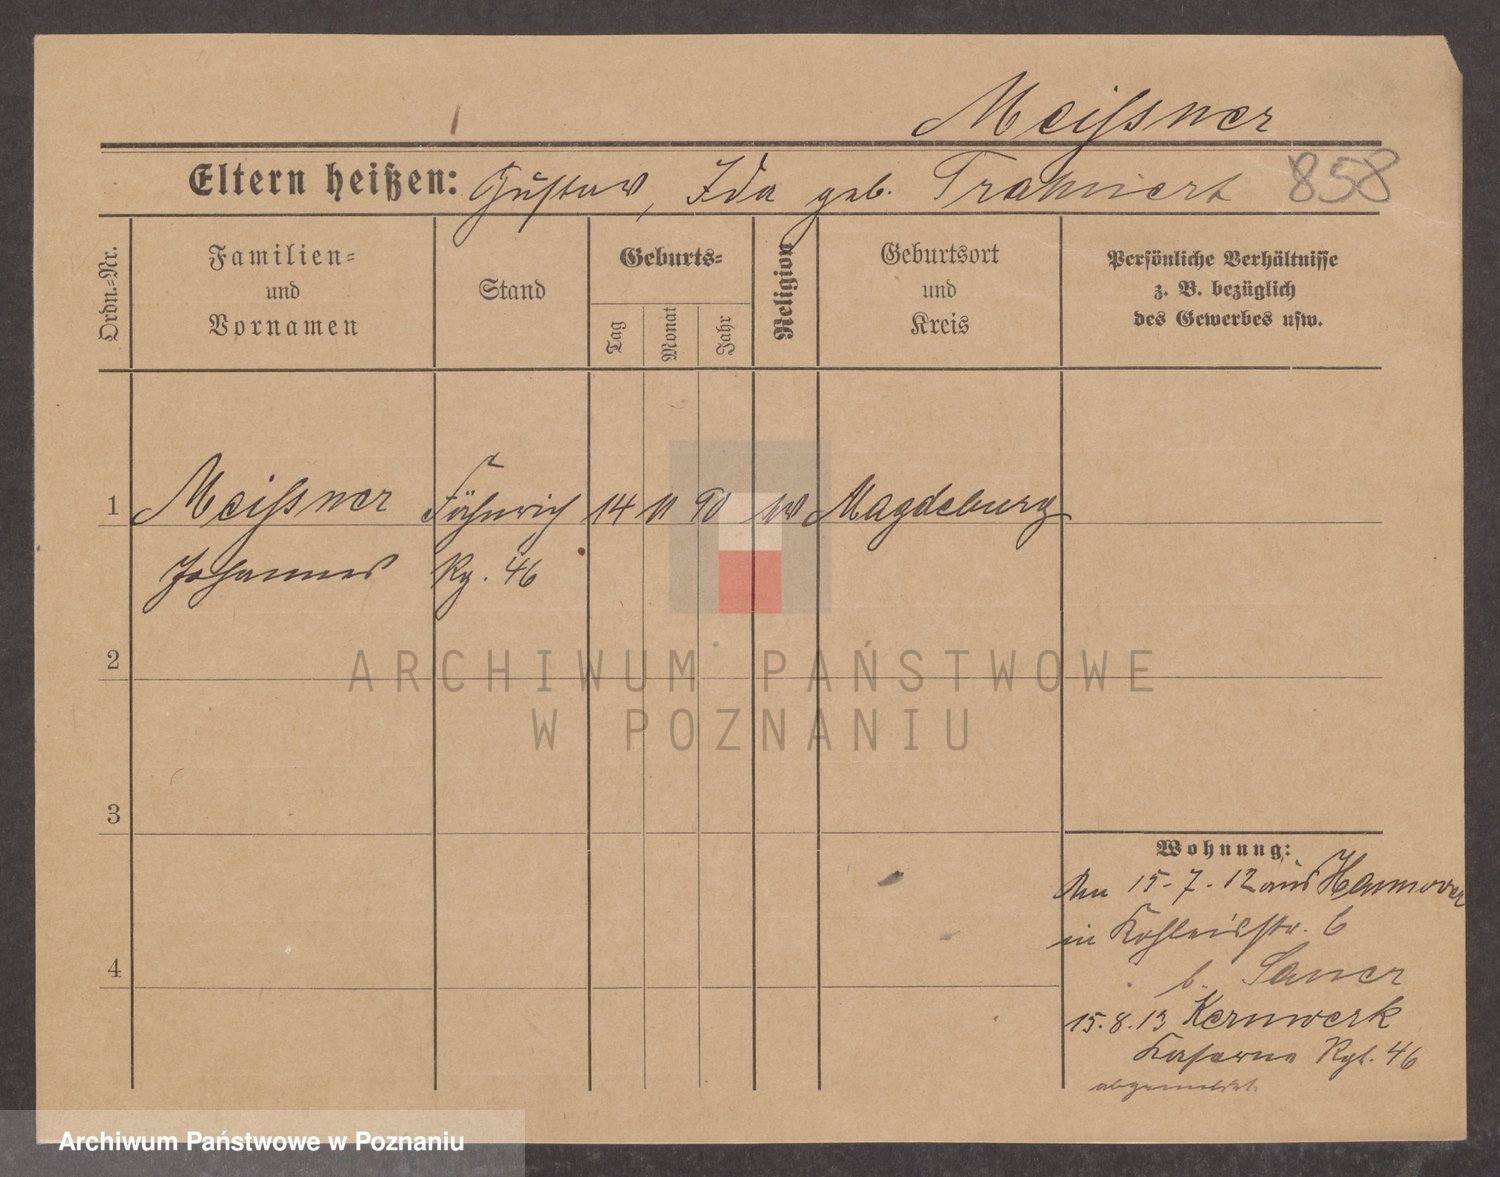 Meißsner
Eltern heißen: Gustav, Ida geb.
858
Ordn.-Nr.
Familien-
und
Vornamen
Stand
Geburts-
Tag
Monat
Jahr
Religion
Geburtsort
und
Kreis
Persönliche Verhältnisse
z. B. bezüglich
des Gewerbes usw.
1 Meißsner Fähnrich 14 11 90 Magdeburg
Johannes Rg. 46
2
ARCHIWUM PAŃSTWOWE
W POZNANIU
3
4
Wohnung:
15-7-12 aus Hannover
in Kohleisstr. 6
b. Sauer
15.8.13 Kernwerk
Kaserne Rgt. 46
abgemeldet
Archiwum Państwowe w Poznaniu